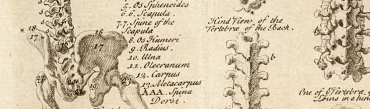 5. Os Sphenoides
6.6. Scapula
7.7. Spine of the
Scapula
8. Os Humeri
9. Radius.
10. Ulna
11. Olecranum
12. Carpus
13. Metacarpus
AAA. Spina
Dorse.
17
18
Hind View of the
Vertebræ of the Back.
One of ye Vertebræ of
Loins in a hin